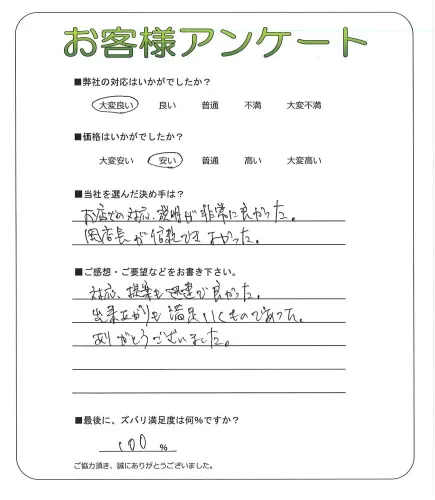 お客様アンケート
■弊社の対応はいかがでしたか？
大変良い 良い 普通 不満 大変不満
■価格はいかがでしたか？
大変安い 安い 普通 高い 大変高い
■当社を選んだ決め手は？
お店での対応、説明が非常に良かった。
岡店長が信頼できそうだった。
■ご感想・ご要望などをお書き下さい。
対応、提案も迅速で良かった。
出来上がりも満足いくものであった。
ありがとうございました。
■最後に、ズバリ満足度は何%ですか？
100 %
ご協力頂き、誠にありがとうございました。